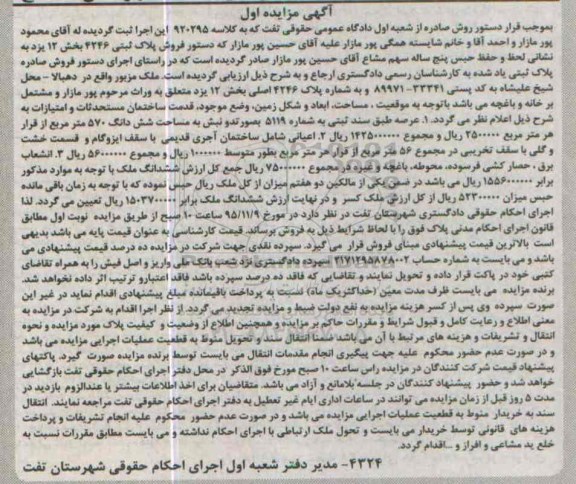 آگهی مزایده اول
بموجب قرار دستور روش صادره از شعبه اول دادگاه عمومی حقوقی تفت که به کلاسه ۹۲۰۲۹۵ این اجرا ثبت گردیده له آقای محمود
پور مازار و احمد آقا و خانم شایسته همگی پور مازار علیه آقای حسین پور مازار که دستور فروش پلاک ثبتی ۴۲۴۶ بخش ۱۲ یزد به
نشانی لحظ و حفظ حبس پنج ساله سهم مشاع آقای حسین پور مازار صادر گردیده است که در راستای اجرای دستور فروش صادره
پلاک ثبتی یاد شده به کارشناسان رسمی دادگستری ارجاع و به شرح ذیل ارزیابی گردیده است. ملک مزبور واقع در دهبالا – محل
شیخ علیشاه به کد پستی ۳۳۳۴۱-۸۹۹۷۱ و به شماره پلاک ۴۲۴۶ اصلی بخش ۱۲ یزد متعلق به وراث مرحوم پور مازار و مشتمل
بر خانه و باغچه می باشد باتوجه به موقعیت ، مساحت، ابعاد و شکل زمین، وضع موجود، قدمت ساختمان مستحدثات و امتیازات به
شرح ذیل اعلام نظر می گردد. ۱. عرصه طبق سند ثبتی به شماره ۵۱۱۹ بصورتدو نبش به مساحت شش دانگ ۵۷۰ متر مربع از قرار
هر متر مربع ۲۵۰۰۰۰۰ ریال و مجموع ۱۴۲۵۰۰۰۰۰۰ ریال ۲. اعیانی شامل ساختمان آجری قدیمی با سقف ایزوگام و قسمت خشت
و گلی با سقف تخریبی در مجموع ۵۶ متر مربع از قرار هر متر مربع بطور متوسط ۱۰۰۰۰۰۰ ریال و مجموع ۵۶۰۰۰۰۰۰ ریال ۳. انشعاب
برق ، حصار کشی فرسوده، محوطه، باغچه و غیره در مجموع ۷۵۰۰۰۰۰۰ ریال جمع کل ارزش ششدانگ ملک با توجه به موارد مذکور
برابر ۱۵۵۶۰۰۰۰۰۰ ریال می باشد در ضمن یکی از مالکین دو هفتم میزان از کل ملک ریال حبس نموده که با توجه به زمان باقی مانده
حبس میزان ۵۲۳۰۰۰۰۰ ریال از کل ارزش ملک کسر و در نهایت ارزش ششدانگ ملک برابر ۱۵۰۳۷۰۰۰۰۰ ریال تعیین می گردد. لذا
اجرای احکام حقوقی دادگستری شهرستان تفت در نظر دارد در مورخ ۹۵/۱۱/۹ ساعت ۱۰ صبح از طریق مزایده نوبت اول مطابق
قانون اجرای احکام مدنی پلاک فوق را با لحاظ شرایط ذیل به فروش برساند. قیمت کارشناسی به عنوان قیمت پایه می باشد بدیهی
است بالاترین قیمت پیشنهادی مبنای فروش قرار می گیرد. سپرده نقدی جهت شرکت در مزایده ده درصد قیمت پیشنهادی می
باشد و می بایست به شماره حساب ۲۱۷۱۲۹۵۸۷۸۰۰۲ سپرده دادگستری نزد شعب بانک ملی واریز و اصل فیش را به همراه تقاضای
کتبی خود در پاکت قرار داده و تحویل نمایند و تقاضایی که فاقد ده درصد سپرده باشد فاقد اعتبارو ترتیب اثر داده نخواهد شد.
برنده مزایده می بایست ظرف مدت معین (حداکثریک ماه) نسبت به پرداخت باقیمانده مبلغ پیشنهادی اقدام نماید در غیر این
صورت سپرده وی پس از کسر هزینه مزایده به نفع دولت ضبط و مزایده تجدید می گردد. از نظر اجرا اقدام به شرکت در مزایده به
معنی اطلاع و رعایت کامل و قبول شرایط و مقررات حاکم بر مزایده و همچنین اطلاع از وضعیت و کیفیت پلاک مورد مزایده و نحوه
انتقال و تشریفات و هزینه های مرتبط با آن می باشد ضمنا انتقال سند و تحویل منوط به قطعیت عملیات اجرایی مزایده می باشد
و در صورت عدم حضور محکوم علیه جهت پیگیری انجام مقدمات انتقال می بایست توسط برنده مزایده صورت گیرد. پاکتهای
پیشنهاد قیمت شرکت کنندگان در مزایده راس ساعت ۱۰ صبح مورخ فوق الذکر در محل دفتر اجرای احکام حقوقی تفت بازگشایی
خواهد شد و حضور پیشنهاد کنندگان در جلسه بلامانع و آزاد می باشد. متقاضیان برای اخذ اطلاعات بیشتر یا عندالزوم بازدید در
مدت ۵ روز قبل از زمان مزایده می توانند در ساعات اداری ایام غیر تعطیل به دفتر اجرای احکام حقوقی تفت مراجعه نمایند. انتقال
سند به خریدار منوط به قطعیت عملیات اجرایی مزایده می باشد و در صورت عدم حضور محکوم علیه انجام تشریفات و پرداخت
هزینه های قانونی توسط خریدار می بایست و تحول ملک ارتباطی با اجرای احکام نداشته و می بایست مطابق مقررات نسبت به
خلع ید مشاعی و افراز و ...اقدام گردد.
۴۳۲۴- مدیر دفتر شعبه اول اجرای احکام حقوقی شهرستان تفت